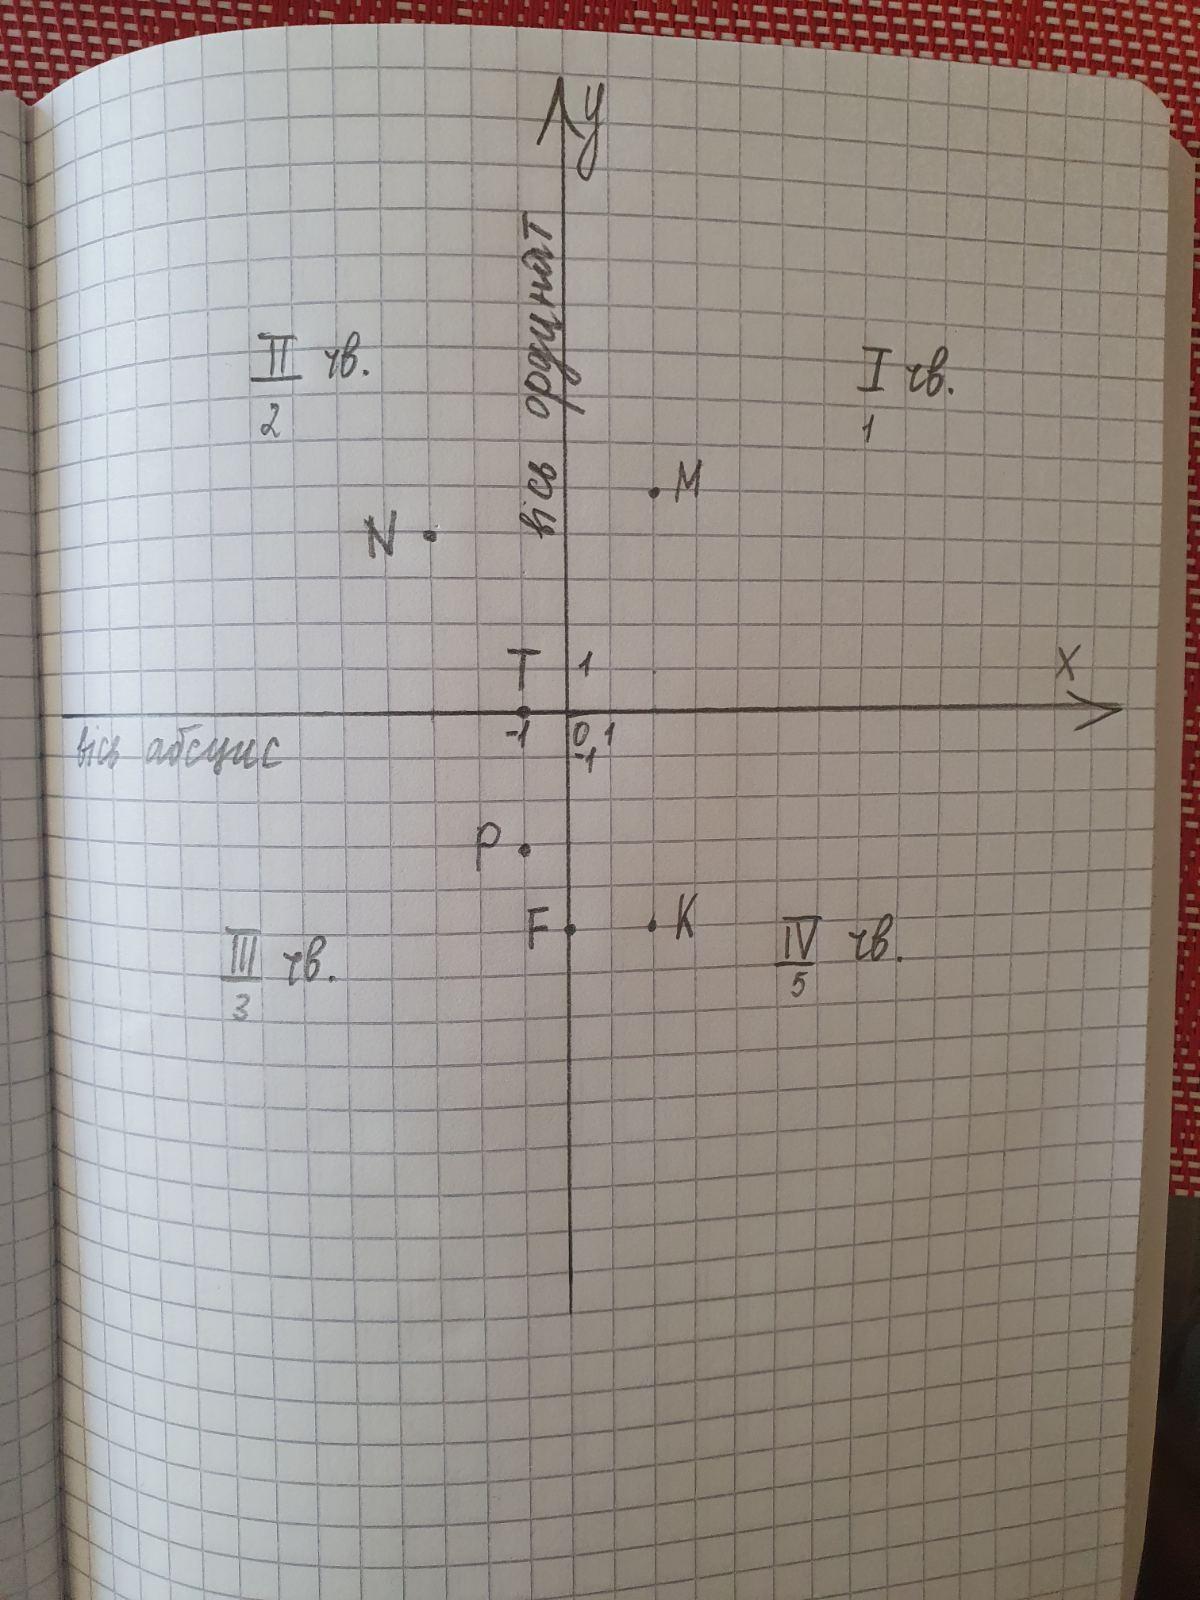 y
вісь ординат
II чв.
2
I чв.
1
M
N
T
1
X
-1
0
1
-1
вісь абсцис
P
F
K
III чв.
3
IV чв.
5